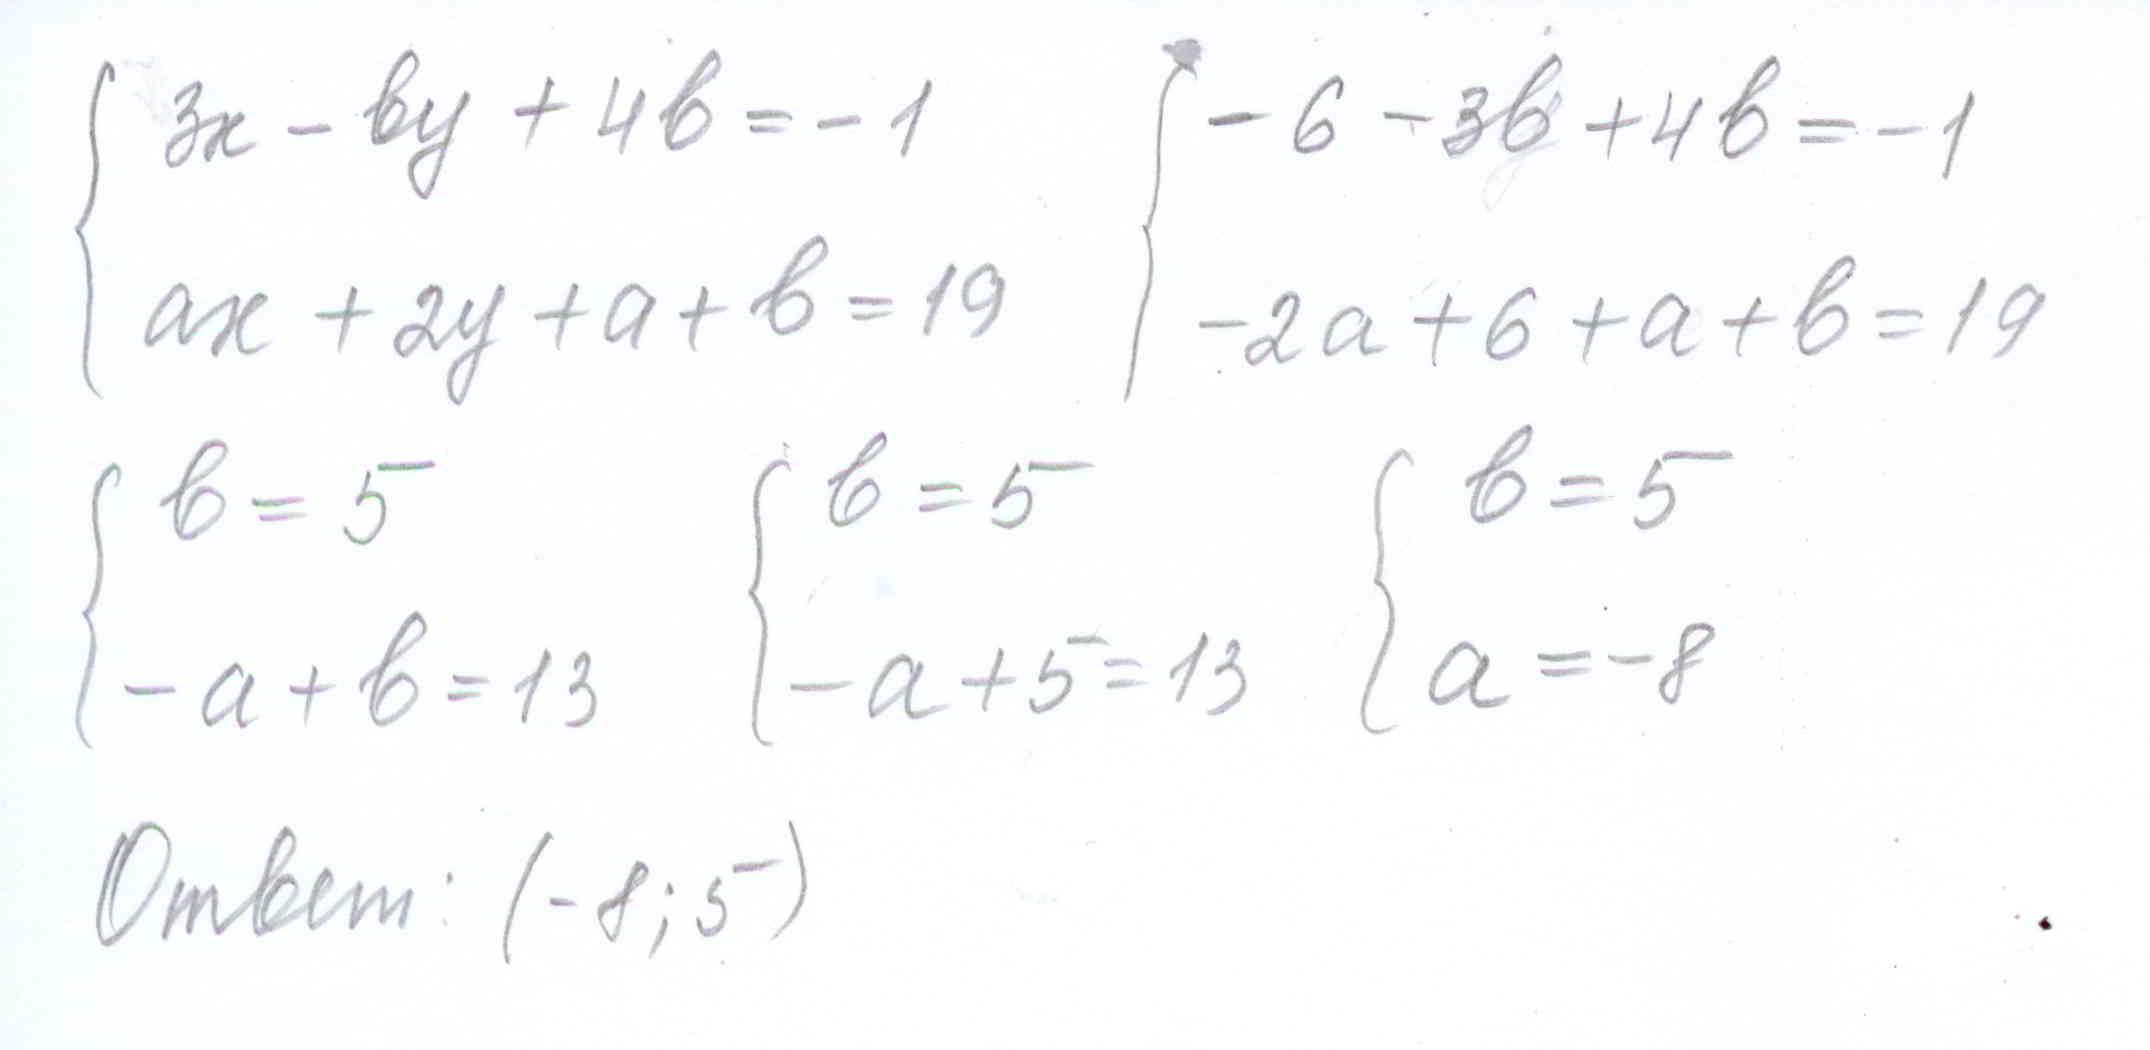 3x - by + 4b = -1
ax + 2y + a + b = 19
-6 - 3b + 4b = -1
-2a + 6 + a + b = 19
b = 5
-a + b = 13
b = 5
-a + 5 = 13
b = 5
a = -8
Ответ: (-8; 5)